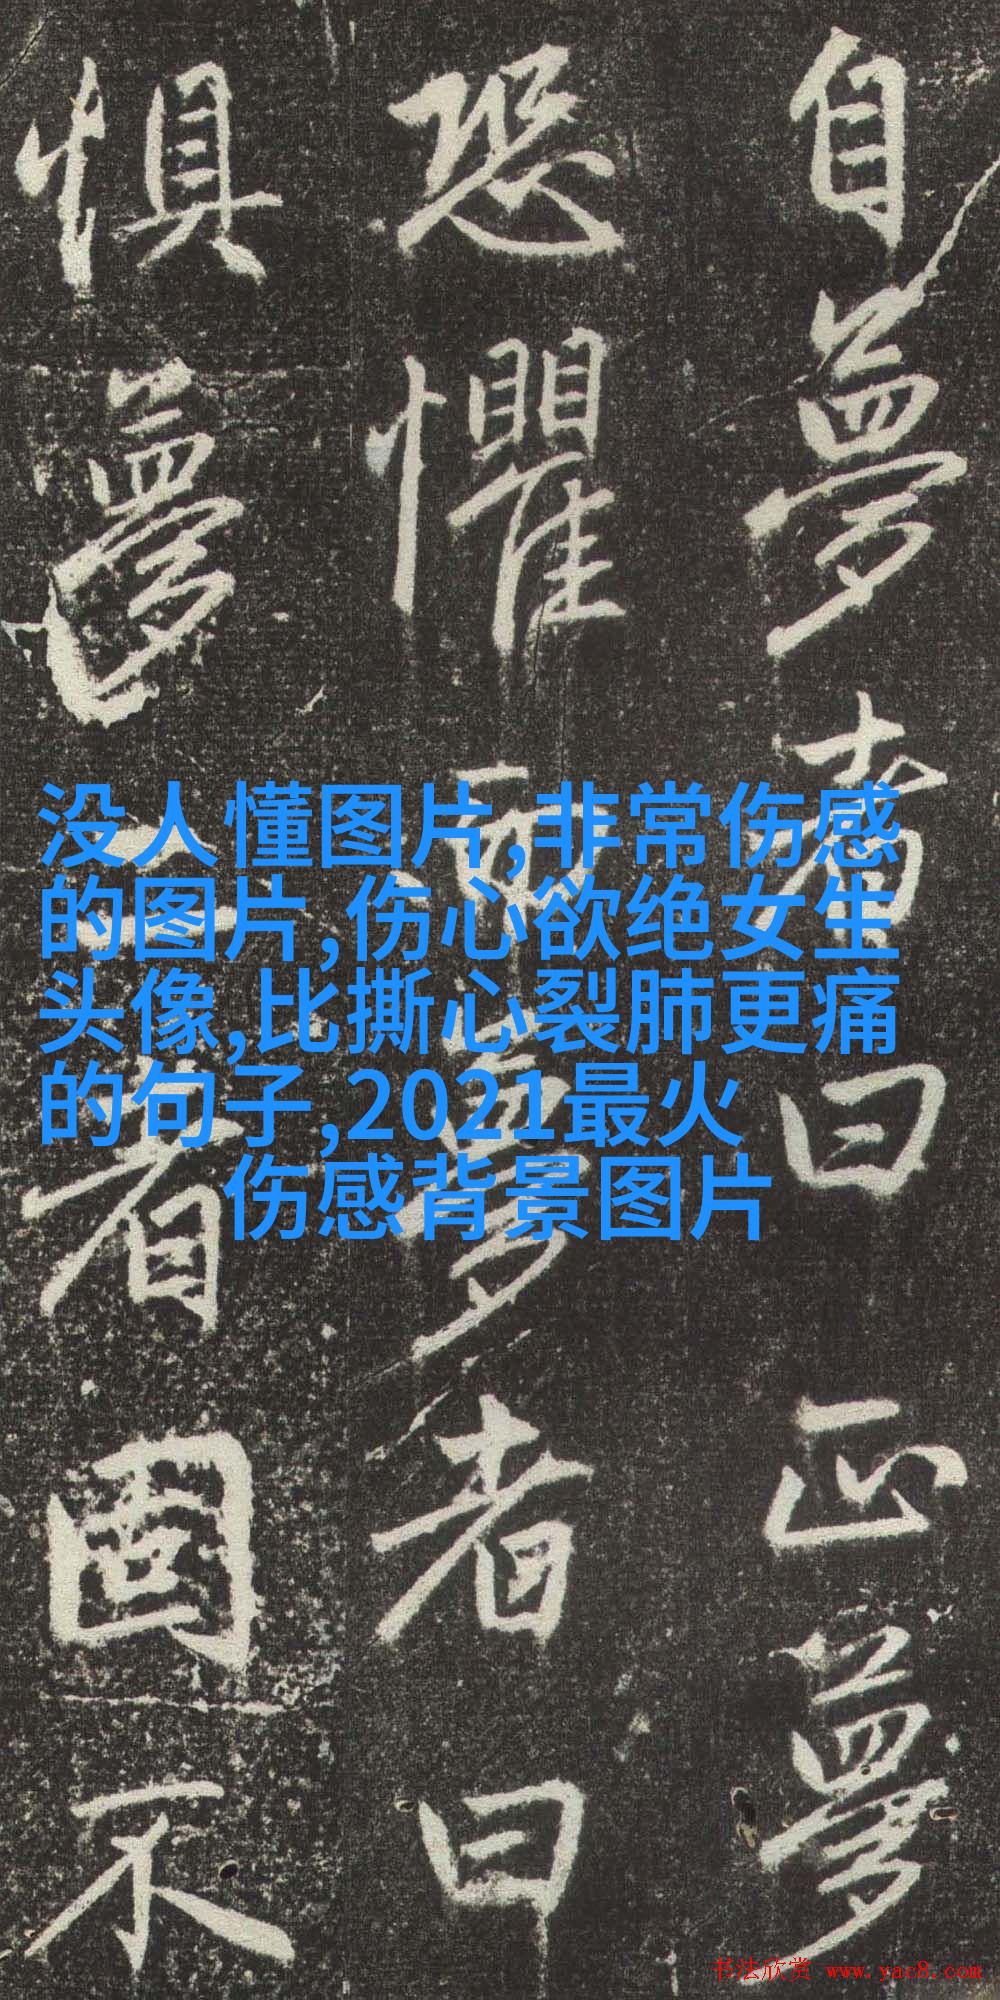 自夢者曰正夢
恐懼而夢者曰
惧夢二者固不
没人懂图片,非常伤感
的图片,伤心欲绝女生
头像,比撕心裂肺更痛
的句子,2021最火
伤感背景图片
书法欣赏 www.yac8.com